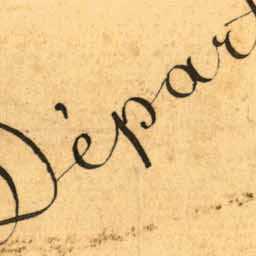 Départ